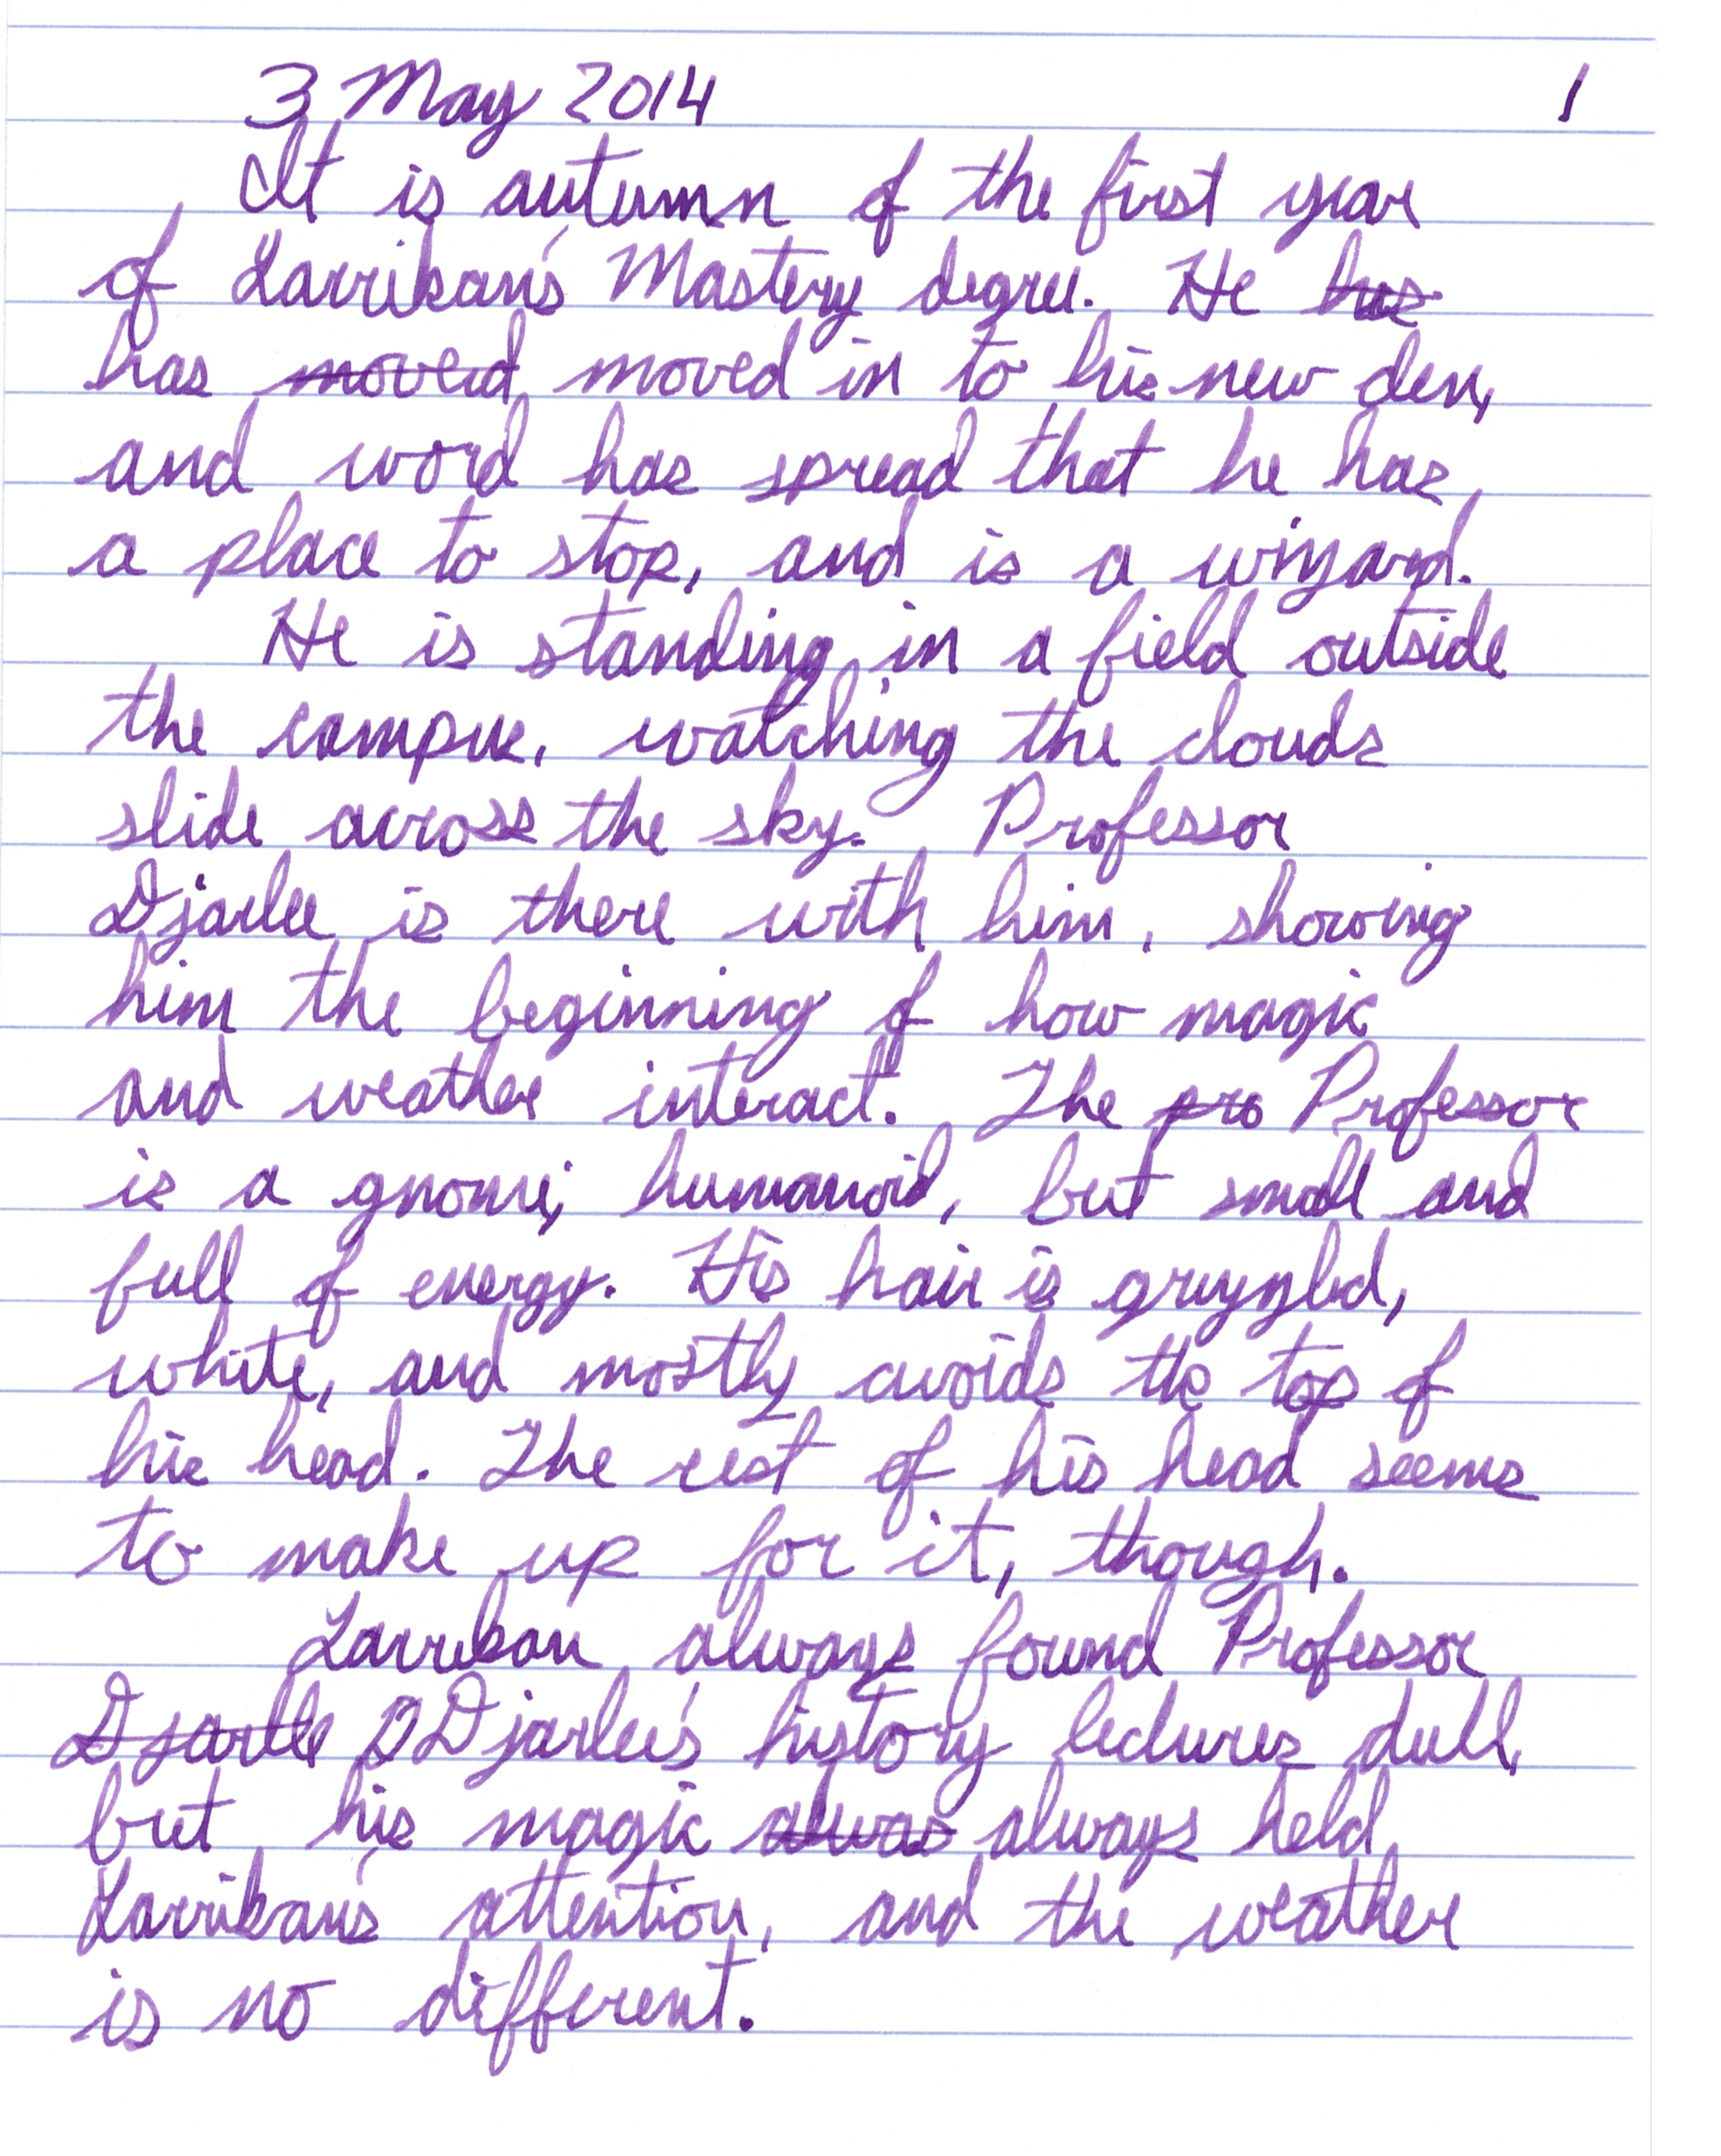 3 May 2014 1
It is autumn of the first year
of Larrikan's Mastery degree. He has
has moved moved in to his new den,
and word has spread that he has
a place to stop, and is a wizard.
He is standing in a field outside
the campus, watching the clouds
slide across the sky. Professor
Djarlee is there with him, showing
him the beginning of how magic
and weather interact. The pro Professor
is a gnome; humanoid, but small and
full of energy. His hair is gryzzled,
white, and mostly avoids the top of
his head. The rest of his head seems
to make up for it, though.
Larrikan always found Professor
Djarlle D Djarlee's history lectures dull,
but his magic alwas always held
Larrikan's attention, and the weather
is no different.